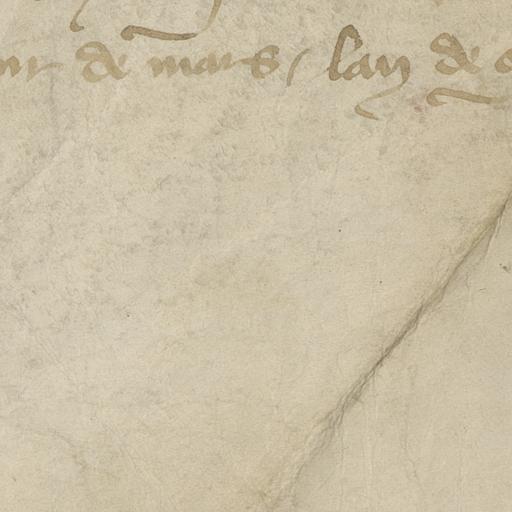 de mars / lan de